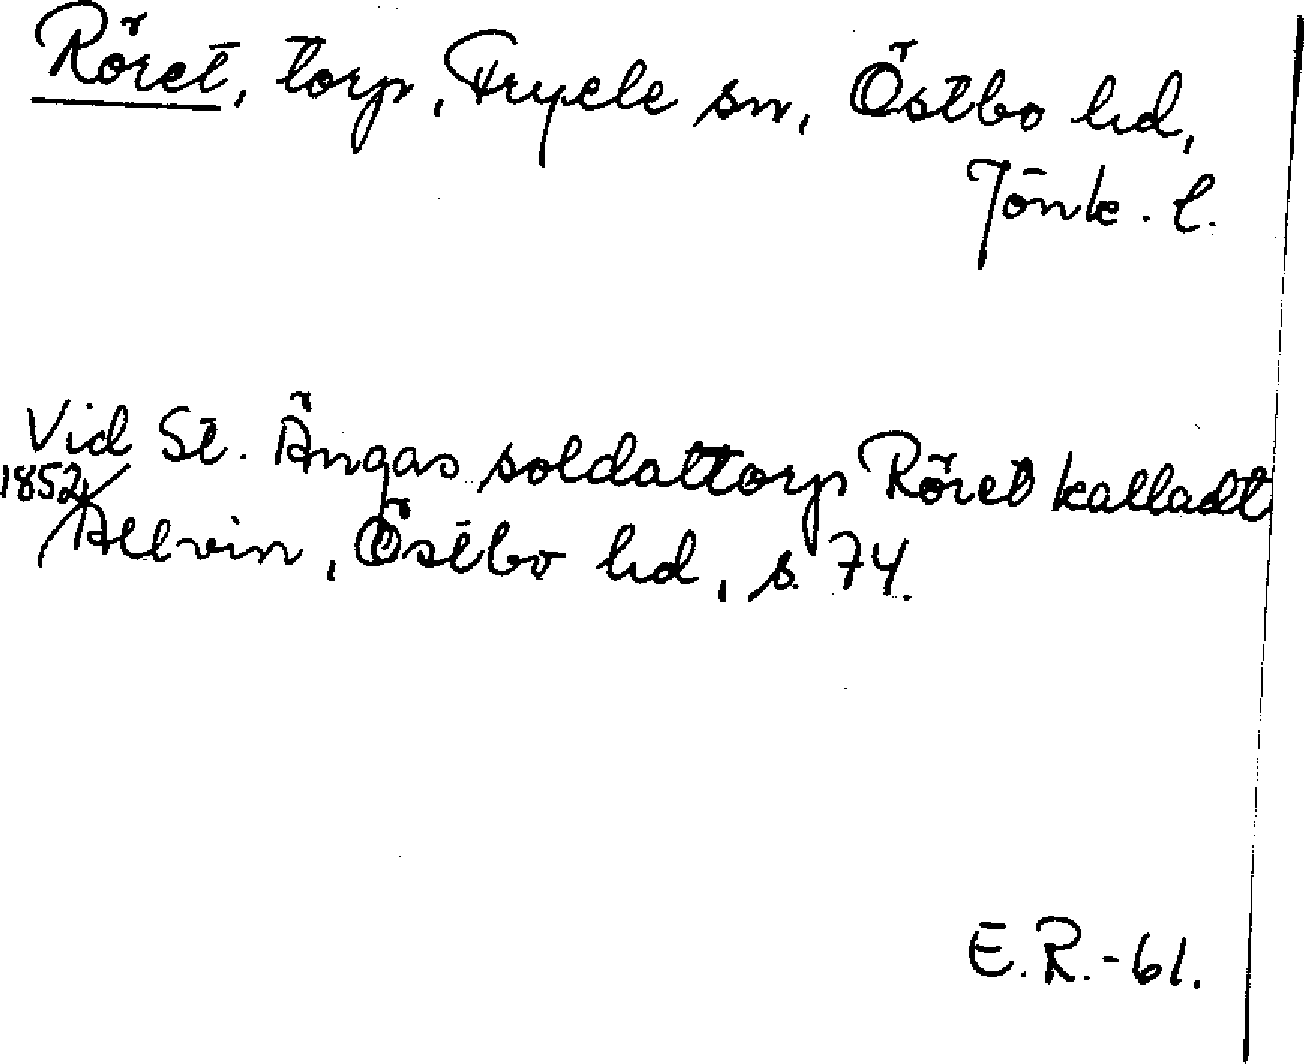 Röret, torp, Fryele sn, Östbo hd,
Jönk. l.
Vid St. Ängas soldattorp Röret kalladt
1852 Allvin, Östbo hd, s. 74.
E.R.-61.